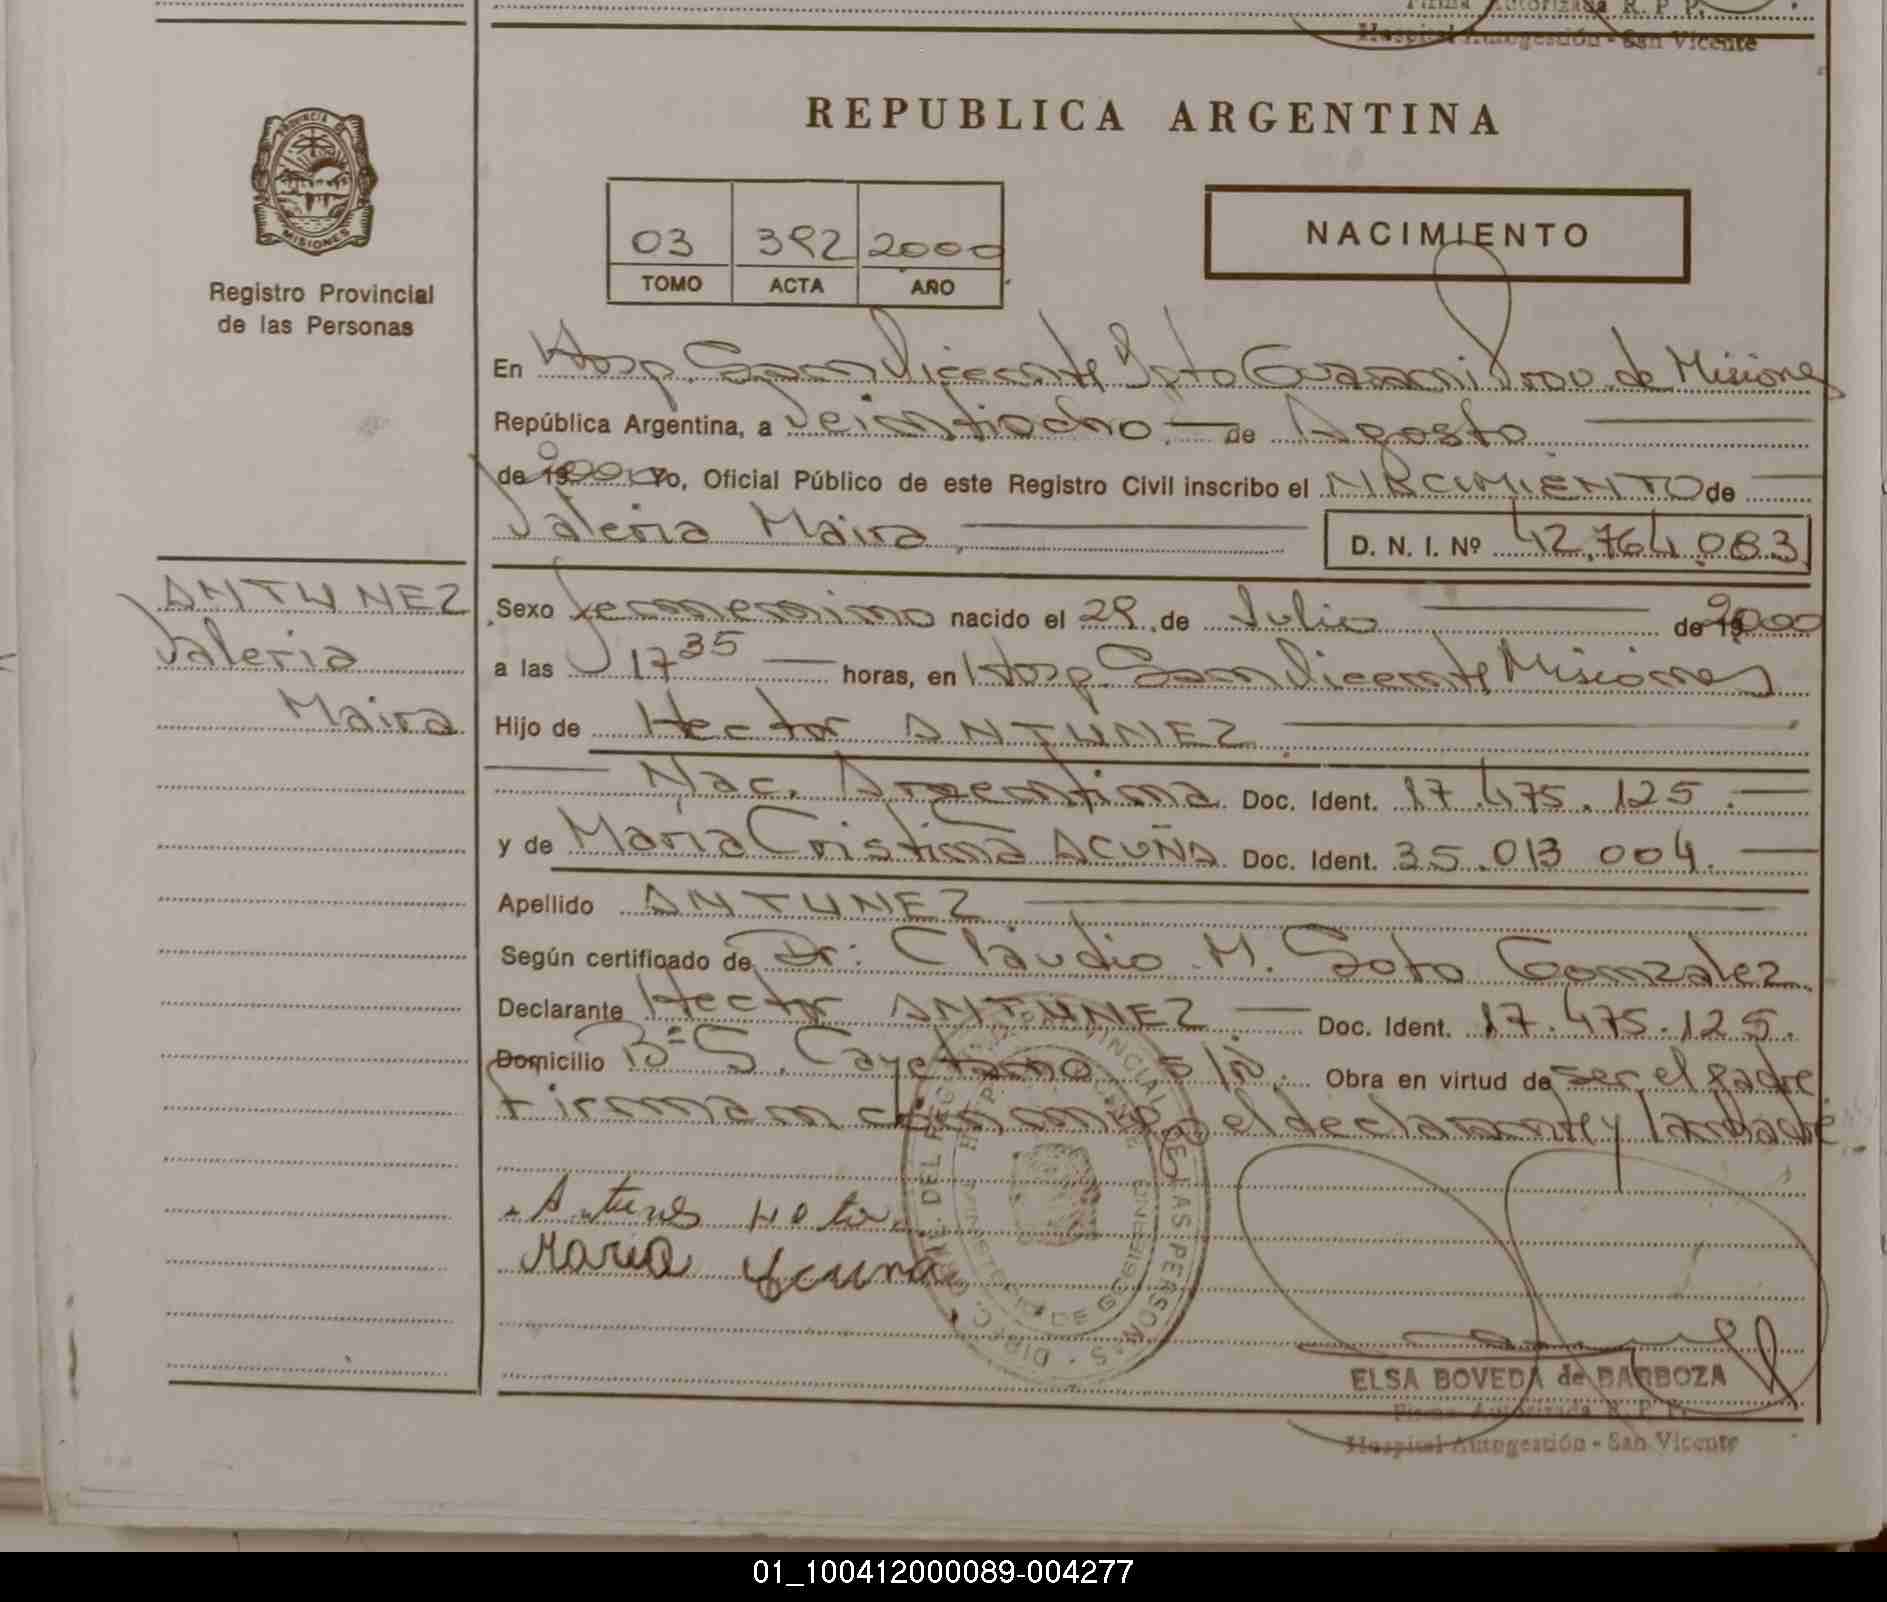 Firma Autorizada R. P. P.
Hospital Autogestión - San Vicente
REPUBLICA ARGENTINA
PROVINCIA DE
MISIONES
Registro Provincial
de las Personas
03 392 2000
TOMO ACTA AÑO
NACIMIENTO
En Hosp. San Vicente Dpto Guarani Prov. de Misiones
República Argentina, a Veintiocho.— de Agosto
de 19 2000 Yo, Oficial Público de este Registro Civil inscribo el NACIMIENTO de
Valeria Maira D. N. I. Nº 42.764.083
ANTUNEZ
Valeria
Maira
Sexo femenino nacido el 29 de Julio de 19 2000
a las 17 35 horas, en Hosp. San Vicente Misiones
Hijo de Hector ANTUNEZ
Nac. Argentina Doc. Ident. 17.475.125.—
y de Maria Cristina ACUÑA Doc. Ident. 35.013 004.—
Apellido ANTUNEZ
Según certificado de Dr: Claudio M. Soto Gonzalez
Declarante Hector ANTUNEZ — Doc. Ident. 17.475.125.
Domicilio Bº S. Cayetano s/n. Obra en virtud de ser el padre
Firman conmigo el declarante y la madre
Antunes Hetor
Maria Acuna
DIREC. GRAL. DEL REG. PROVINCIAL DE LAS PERSONAS
MINISTERIO DE GOBIERNO
ELSA BOVEDA de BARBOZA
Firma Autorizada R. P. P.
Hospital Autogestión - San Vicente
01_100412000089-004277